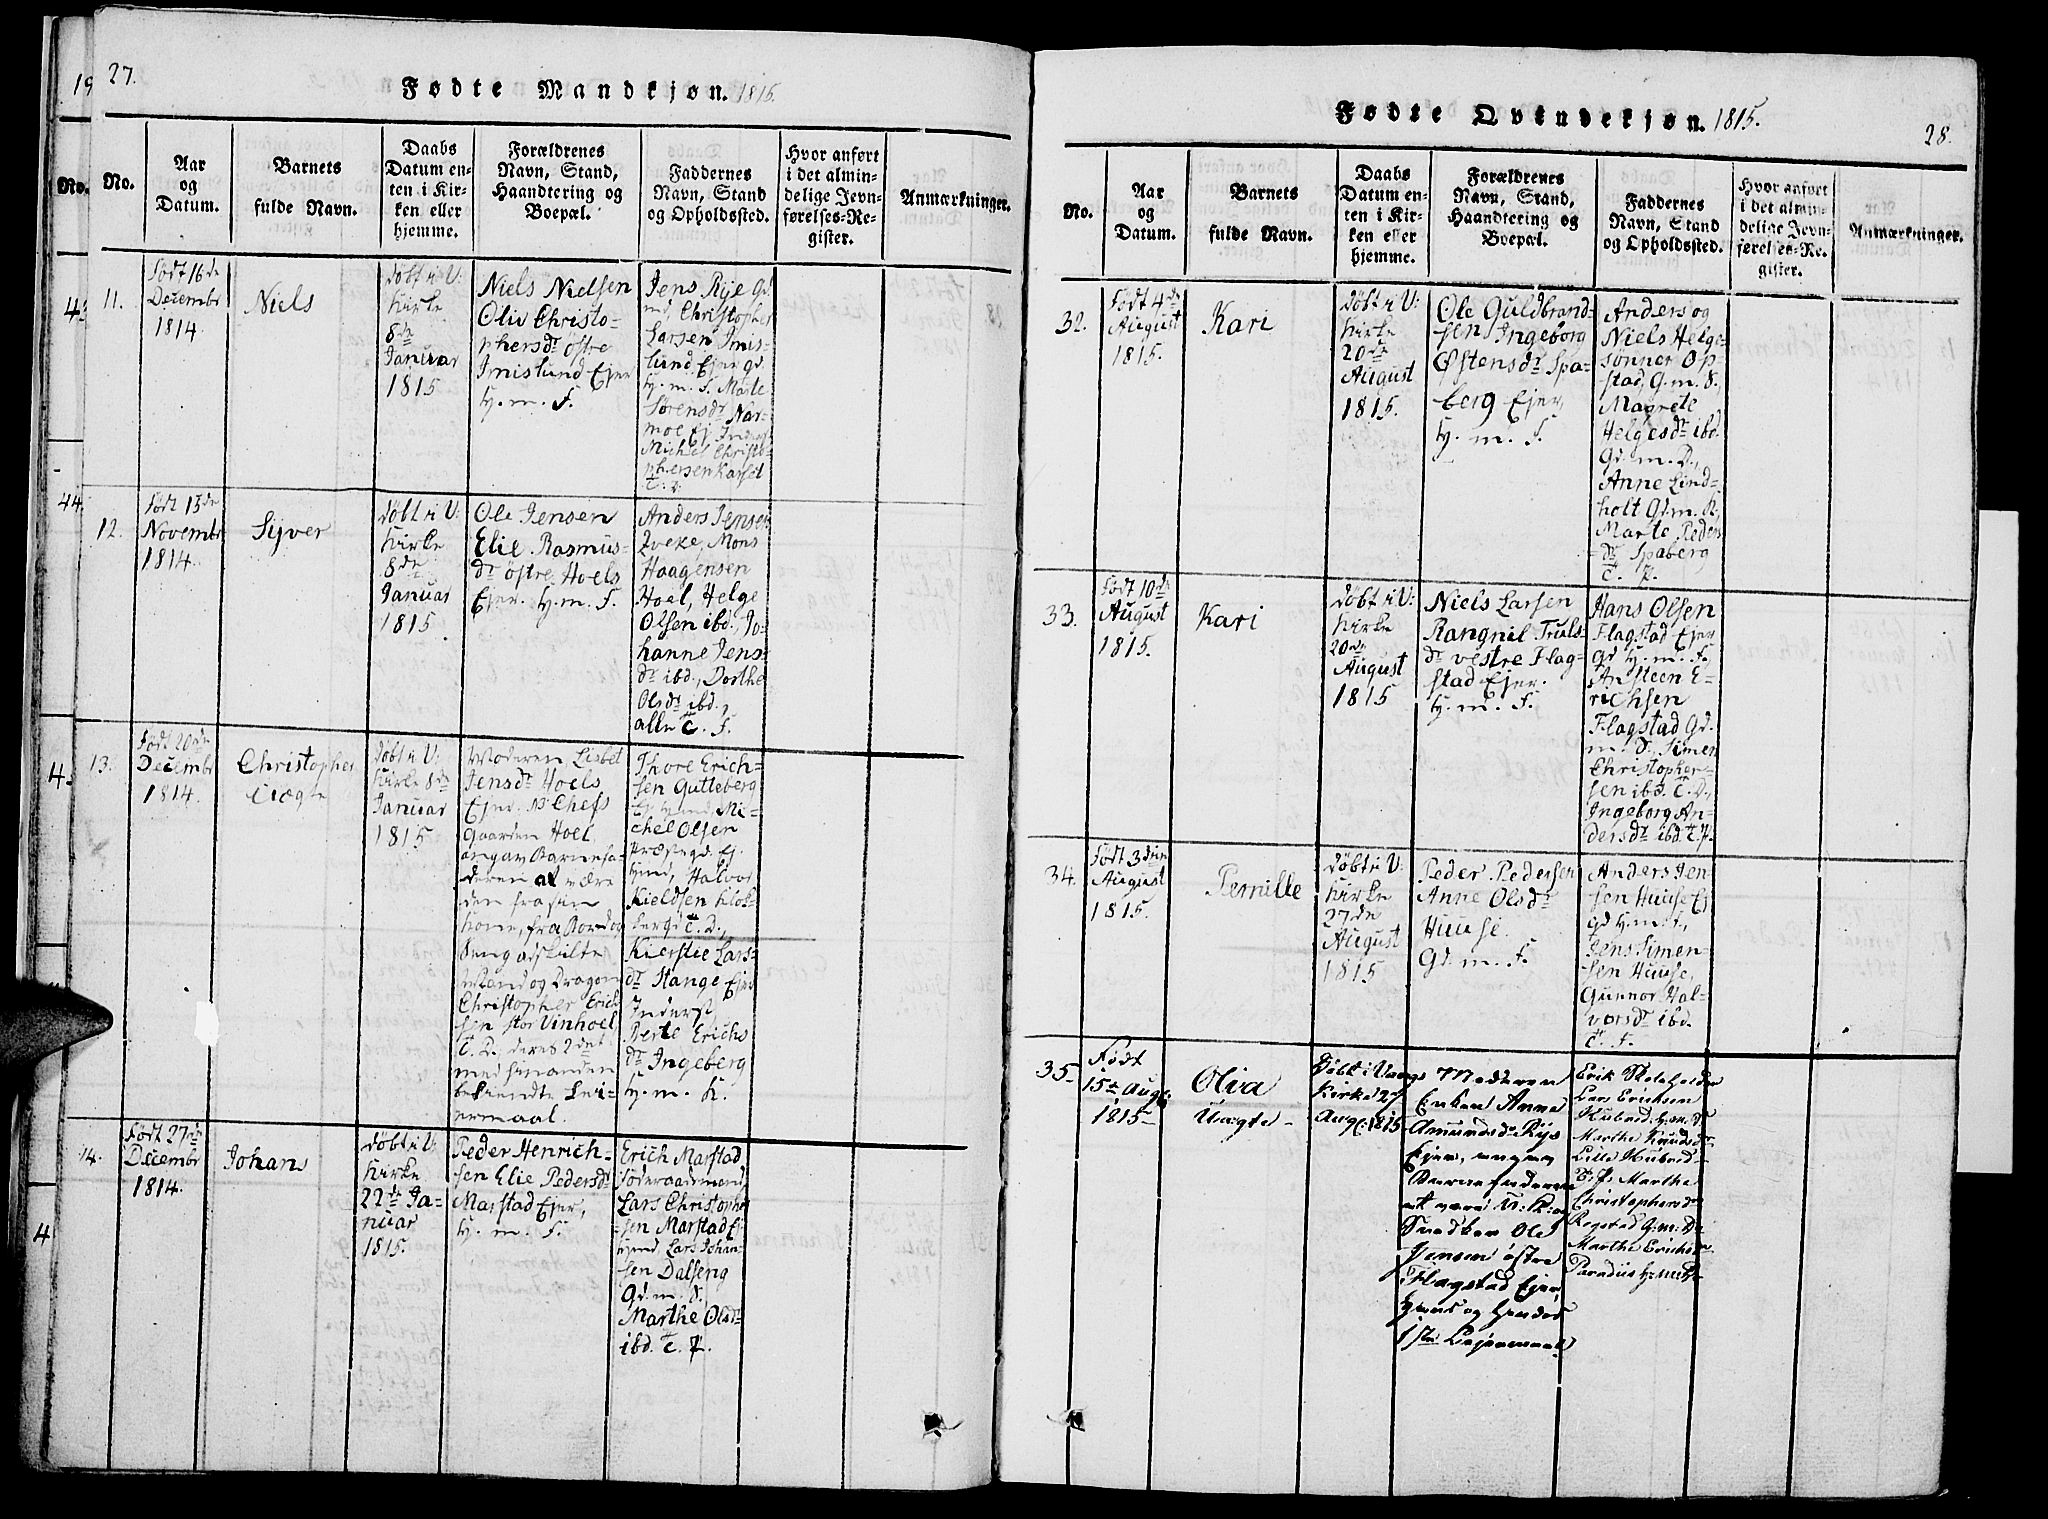 27.
Fødte Mandkjøn. 1815.
No.
Aar
og
Datum.
Barnets
fulde Navn.
Daabs
Datum en-
ten i Kir-
ken eller
hjemme.
Forældrenes
Navn, Stand,
Haandtering og
Boepæl.
Faddernes
Navn, Stand
og Opholdssted.
Hvor anført
i det almin-
delige Jevn-
førelses-Re-
gister.
Anmærkninger.
11.
Født 16de
Decembr
1814.
Niels
Døbt i V:
Kirke
8de
Januar
1815
Niels Nielsen
Oliv Christo-
phersdr østre
Imislund Ejer
H. m. F.
Jens Rye Gd
md, Christopher
Larsen Imis-
lund Ejer gd.
H. m. F. Marte
Sørensdr Nar-
moe Ej. Inderst
Michel Christo-
phersen Karset
T. D.
12.
Født 15de
Novembr
1814.
Syver
Døbt i V:
Kirke
8de
Januar
1815
Ole Jensen
Elie Rasmus-
dr østre Hoels
Ejer. H. m. F.
Anders Jensen
Qveke, Mons
Haagensen
Hoel, Helge
Olsen ibd., Jo-
hanne Jens-
dr ibd., Dorthe
Olsdr ibd.,
alle T. F.
13.
Født 20de
Decembr
1814.
Christopher
Uægte
Døbt i V:
Kirke 8de
Januar
1815
Moderen Lisbet
Jensdr Hoels
Ejer.
Gaarden Hoel,
angav Barnefa-
deren at være
den fra sin
Kone, fra Bord og
Seng adskilte
Mand og Dragon
Christopher Erich-
sen stor Vinhoel
T. D., deres 2det
med hinanden
bekiendte Lei-
ermaal.
Thore Erich-
sen Gutteberg
Ej. Hmd, Mi-
chel Olsen
Præstegd. Ej.
Hmd, Halvor
Kieldsen Klok-
kergd T. D.,
Kierstie Lars-
dr Stange Ejer
Inderst,
Berte Erichs
dr Ingeberg
H. m. K.
14.
Født 27de
Decembr
1814.
Johans
Døbt i V:
Kirke
22de Ja-
nuar
1815.
Peder Henrich-
sen Elie Pedersdr
Marstad Ejer,
H. m. F.
Erich Marstad
Føderaadsmand,
Lars Christopher-
sen Marstad Ej
Hmd, Lars Johan-
sen Dalseng
Gd. m. S.
Marthe Olsdr
ibd. T. P.
Fødte Qvindekjøn. 1815.
28.
No.
Aar
og
Datum.
Barnets
fulde Navn.
Daabs
Datum en-
ten i Kir-
ken eller
hjemme.
Forældrenes
Navn, Stand,
Haandtering og
Boepæl.
Faddernes
Navn, Stand
og Opholdssted.
Hvor anført
i det almin-
delige Jevn-
førelses-Re-
gister.
Anmærkninger.
32.
Født 4de
August
1815.
Kari
Døbt i V:
Kirke
20de
August
1815.
Ole Guldbrand-
sen Ingeborg
Østensdr Spa-
berg Ejer,
H. m. F.
Anders og
Niels Helge-
sønner Op-
stad, G. m. S.,
Magrete
Helgesdr ibd.
Gd. m. D.,
Anne Lind-
holt Gd. m. K,
Marte Peders
dr Spaberg
T. P.
33.
Født 10de
August
1815.
Kari
Døbt i V:
Kirke
20de
August
1815
Niels Larsen
Rangnil Truls-
dr vestre Flag-
stad Ejer.
H. m. F.
Hans Olsen
Flagstad Ejer
gd H. m. F.,
Ansteen E-
richsen
Flagstad Gd.
m. S., Simen
Christopher-
sen ibd. T. D.,
Ingeborg An-
dersdr ibd. T. P.
34.
Født 3die
August
1815.
Pernille
Døbt i V:
Kirke
27de
August
1815
Peder Pedersen
Anne Olsdr
Huuse
Gd. m. F.
Anders Jen-
sen Huuse Ej
gd H. m. F.,
Jens Simen-
sen Huuse,
Gunnor Hal-
vorsdr ibd.
T. F.
35
Født
15de Augt.
1815
Olia
Uægte
Døbt i Vangs
Kirke 27
Augt. 1815
Moderen
Enken Anne
Amundsdr Rys
Ejer, angav
Barnefaderen
at være U. K. og
Snedker Ole
Jensen østre
Flagstad Ejer,
Hans og Hendes
1ste Lejermaal
Erik Stolehelder
Lars Eriksen
Hubred H. m. F.
Marthe Knudsdr
Lille Hubred
T. P. Marthe
Christophersdr
Rogstad G. m. D.
Marthe Erichsdr
Paradiis H. m. K.